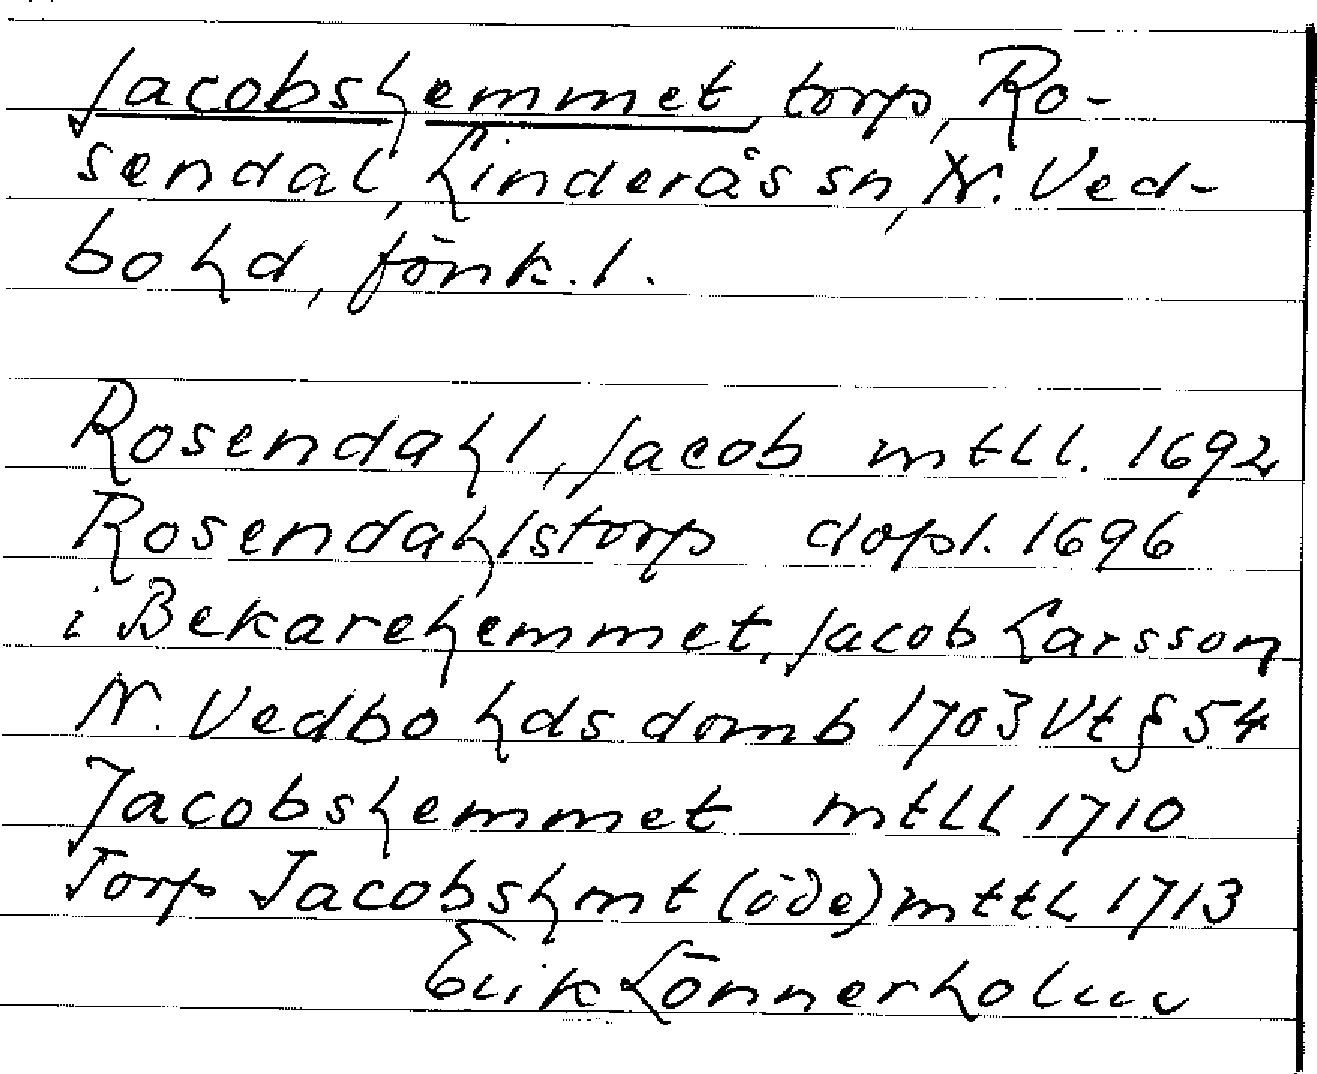 Jacobshemmet, torp, Ro-
sendal, Linderås sn, N. Ved-
bo hd, Jönk. l.
Rosendahl, Jacob mtll. 1692
Rosendahlstorp dopl. 1696
i Bekarehemmet, Jacob Larsson
N. Vedbo hds domb 1703 Vt § 54
Jacobshemmet mtll 1710
Torp Jacobshmt (öde) mttl 1713
Erik Lönnerholm